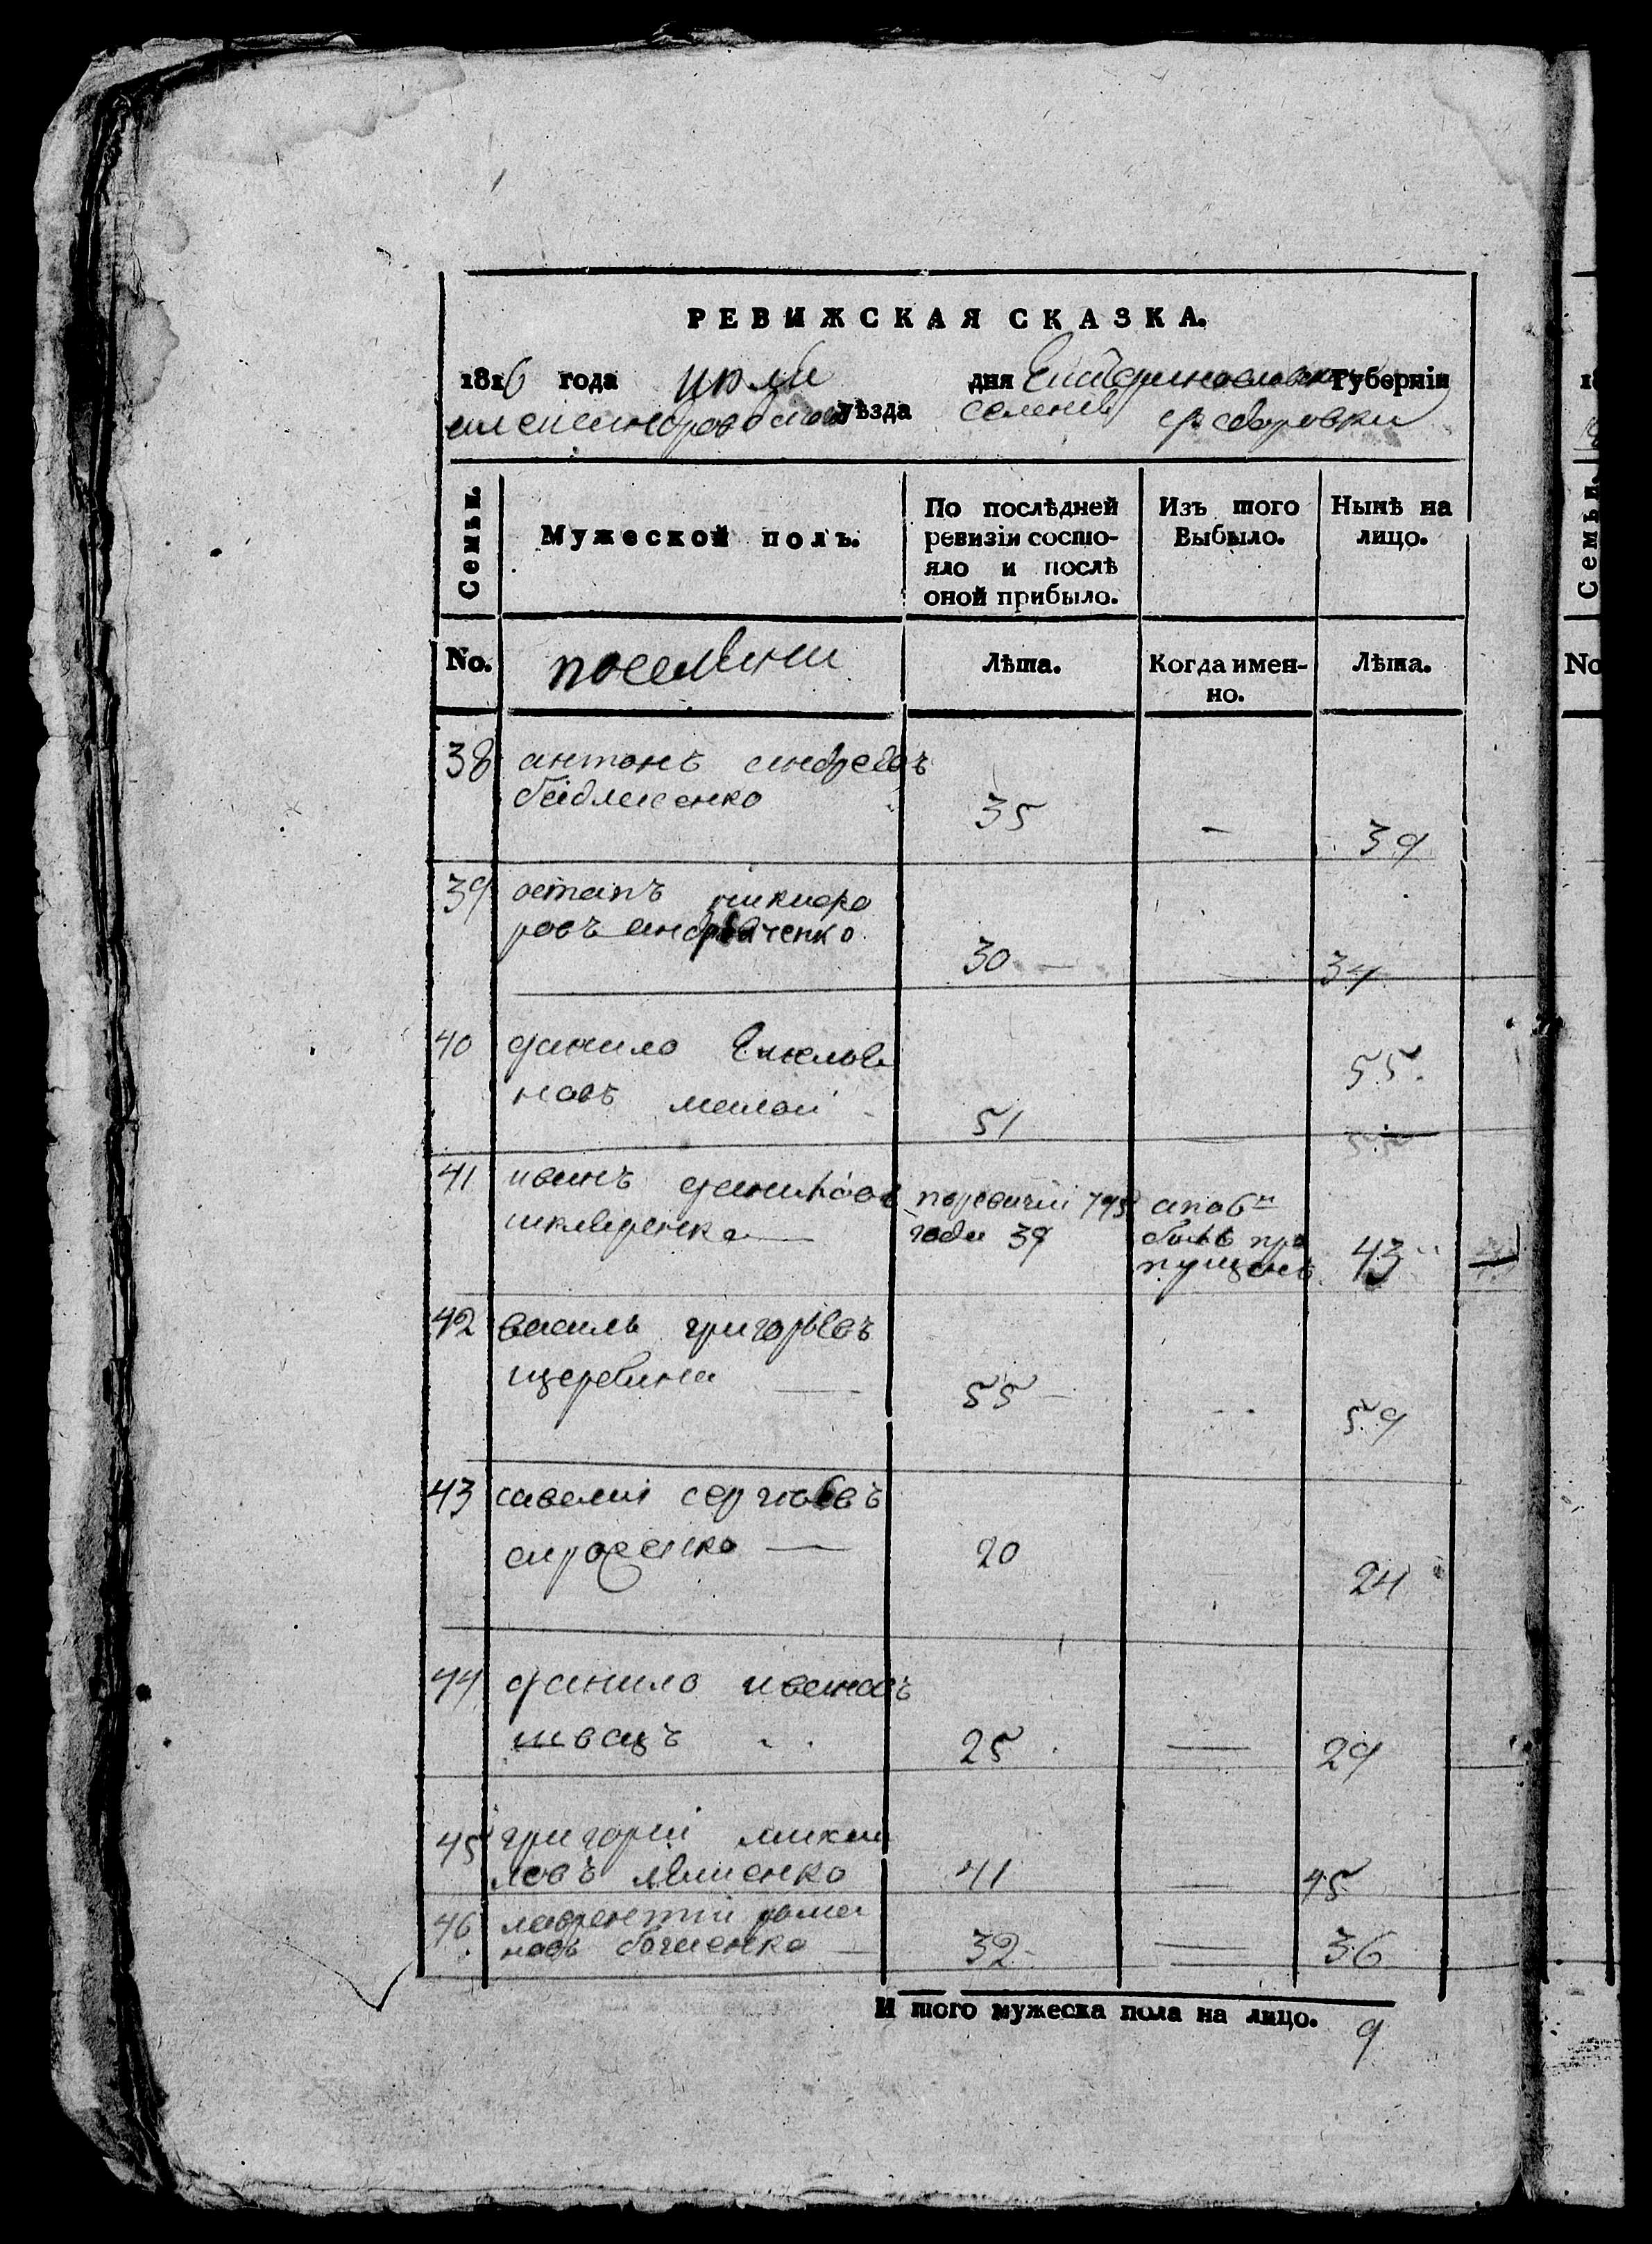 РЕВИЖСКАЯ СКАЗКА.
1816 года июля дня Екатеринославской Губерніи
александровского уѣзда селенія федоровки
Семьи.
Мужеской полъ.
По послѣдней
ревизіи состо-
яло и послѣ
оной прибыло.
Изъ того
Выбыло.
Нынѣ на
лицо.
No.
поселяни
Лѣта.
Когда имен-
но.
Лѣта.
38 антонъ андреевъ
35 - 39
39 остапъ никифо
ровъ андрѣиченко
30 — 34
40 данило
новъ малой 51 55.
41 иванъ даниловъ
шкляренко —
поревизіи 795
года 39
аповт
былъ про
пущенъ
43
42 василь григорьевъ
щербина — 55 — 59
43 савелий сергѣевъ
20 24
44 данило ивановъ
швецъ 25 — 29
45 григорій михай
ловъ ляшенко 41 — 45
46 лаврентій рома
новъ — 32 — 36
И того мужеска пола на лицо. 9
Семьи.
No